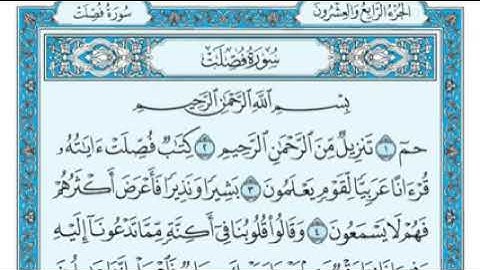 سُورَةُ فُصِّلَتْ
الجُزْءُ الرَّابِعُ وَالعِشْرُونَ
سُورَةُ فُصِّلَتْ
بِسْمِ اللَّهِ الرَّحْمَٰنِ الرَّحِيمِ
حمٓ ١ تَنزِيلٌ مِّنَ الرَّحْمَٰنِ الرَّحِيمِ ٢ كِتَٰبٌ فُصِّلَتْ ءَايَٰتُهُۥ
قُرْءَانًا عَرَبِيًّا لِّقَوْمٍ يَعْلَمُونَ ٣ بَشِيرًا وَنَذِيرًا فَأَعْرَضَ أَكْثَرُهُمْ
فَهُمْ لَا يَسْمَعُونَ ٤ وَقَالُوا۟ قُلُوبُنَا فِىٓ أَكِنَّةٍ مِّمَّا تَدْعُونَآ إِلَيْهِ